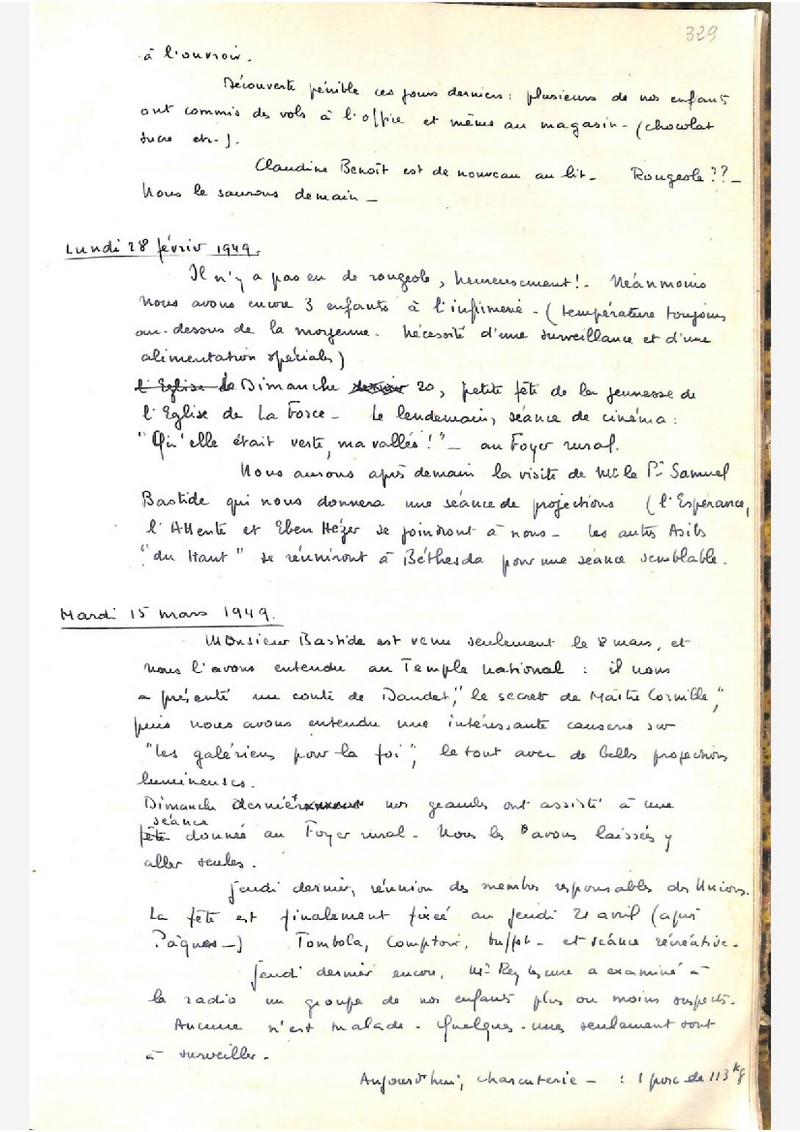 329
à l'ouvroir.
Découverte pénible ces jours derniers : plusieurs de nos enfants
ont commis des vols à l'office et même au magasin - (chocolat
sucre etc.).
Claudine Benoît est de nouveau au lit - Rougeole ?? -
Nous le saurons demain -
Lundi 28 février 1949.
Il n'y a pas eu de rougeole, heureusement ! - Néanmoins
nous avons encore 3 enfants à l'infirmerie - (température toujours
au-dessus de la moyenne. Nécessité d'une surveillance et d'une
alimentation spéciales)
l'Eglise de Dimanche dernier 20, petite fête de la jeunesse de
l'Eglise de La Force - Le lendemain, séance de cinéma :
"Qu'elle était verte, ma vallée !" - au Foyer rural.
Nous aurons après demain la visite de Mr le Pr Samuel
Bastide qui nous donnera une séance de projections (l'Espérance,
l'Attente et Eben Hézer se joindront à nous - Les autres Asiles
"du Haut" se réuniront à Béthesda pour une séance semblable.
Mardi 15 mars 1949.
Monsieur Bastide est venu seulement le 8 mars, et
nous l'avons entendu au Temple national : il nous
a présenté un conte de Daudet, "le secret de Maître Cornille,"
puis nous avons entendu une intéressante causerie sur
"les galériens pour la foi", le tout avec de belles projections
lumineuses.
Dimanche dernier nos grandes ont assisté à une
séance
fête donnée au Foyer rural. Nous les avons laissées y
aller seules.
Jeudi dernier, réunion des membres responsables des Unions.
La fête est finalement fixée au jeudi 21 avril (après
Pâques -) Tombola, Comptoir, buffet - et séance récréative -
Jeudi dernier encore, Mr Rey Lescure a examiné à
la radio un groupe de nos enfants plus ou moins suspects.
Aucune n'est malade - Quelques-unes seulement sont
à surveiller -
Aujourd'hui, charcuterie - : 1 porc de 113 kg